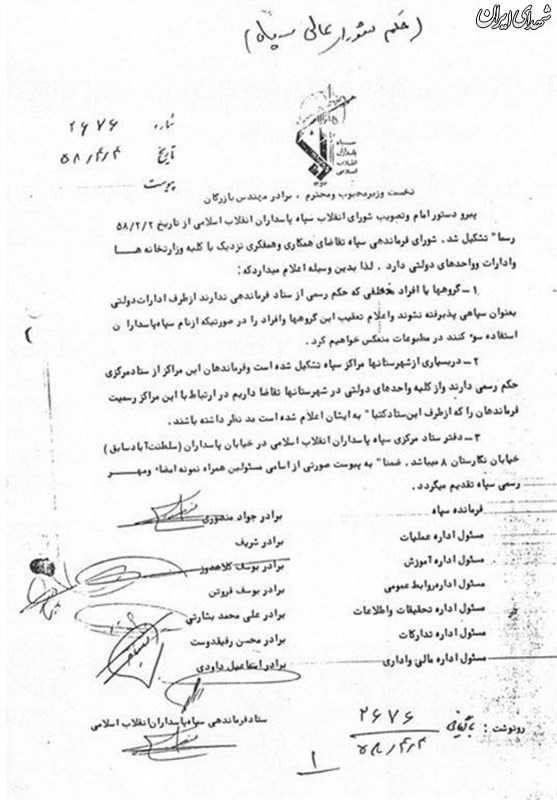 شهدای ایران
(حکم شورای عالی سپاه)
شماره ۲۶۷۶
تاریخ ۵۸/۴/۴
پیوست
سپاه
پاسداران
انقلاب
اسلامی
نخست وزیر محبوب ومحترم ، برادر مهندس بازرگان
پیرو دستور امام وتصویب شورای انقلاب سپاه پاسداران انقلاب اسلامی از تاریخ ۵۸/۲/۲
رسما" تشکیل شد. شورای فرماندهی سپاه تقاضای همکاری وهمفکری نزدیک با کلیه وزارتخانه هـا
وادارات وواحدهای دولتی دارد . لذا بدین وسیله اعلام میداردکه:
۱ـ گروهها یا افراد مختلفی که حکم رسمی از ستاد فرماندهی ندارند ازطرف ادارات‌دولتی
بعنوان سپاهی پذیرفته نشوند واعلام تعقیب این گروهها وافراد را در صورتیکه ازنام سپاه‌پاسداران
استفاده سوء کنند در مطبوعات منعکس خواهیم کرد .
۲ـ دربسیاری ازشهرستانها مراکز سپاه تشکیل شده است وفرماندهان این مراکز از ستادمرکزی
حکم رسمی دارند واز کلیه واحدهای دولتی در شهرستانها تقاضا داریم در ارتباط با این مراکز رسمیت
فرماندهان را که ازطرف این‌ستاد کتبا" به ایشان اعلام شده است مد نظر داشته باشند.
۳ـ دفتر ستاد مرکزی سپاه پاسداران انقلاب اسلامی در خیابان پاسداران (سلطنت‌آبادسابق)
خیابان نگارستان ۸ میباشد. ضمنا" به پیوست صورتی از اسامی مسئولین همراه نمونه امضاء ومهـر
رسمی سپاه تقدیم میگردد.
فرمانده سپاه برادر جواد منصوری
مسئول اداره عملیات برادر شریف
مسئول اداره آموزش برادر یوسف کلاهدوز
مسئول اداره روابط عمومی برادر یوسف فروتن
مسئول اداره تحقیقات واطلاعات برادر علی محمد بشارتی
مسئول اداره تدارکات برادر محسن رفیقدوست
مسئول اداره مالی واداری برادر اسماعیل داودی
ستاد فرماندهی سپاه پاسداران انقلاب اسلامی
رونوشت : بایگانی ۲۶۷۶
۵۸/۴/۴
۱